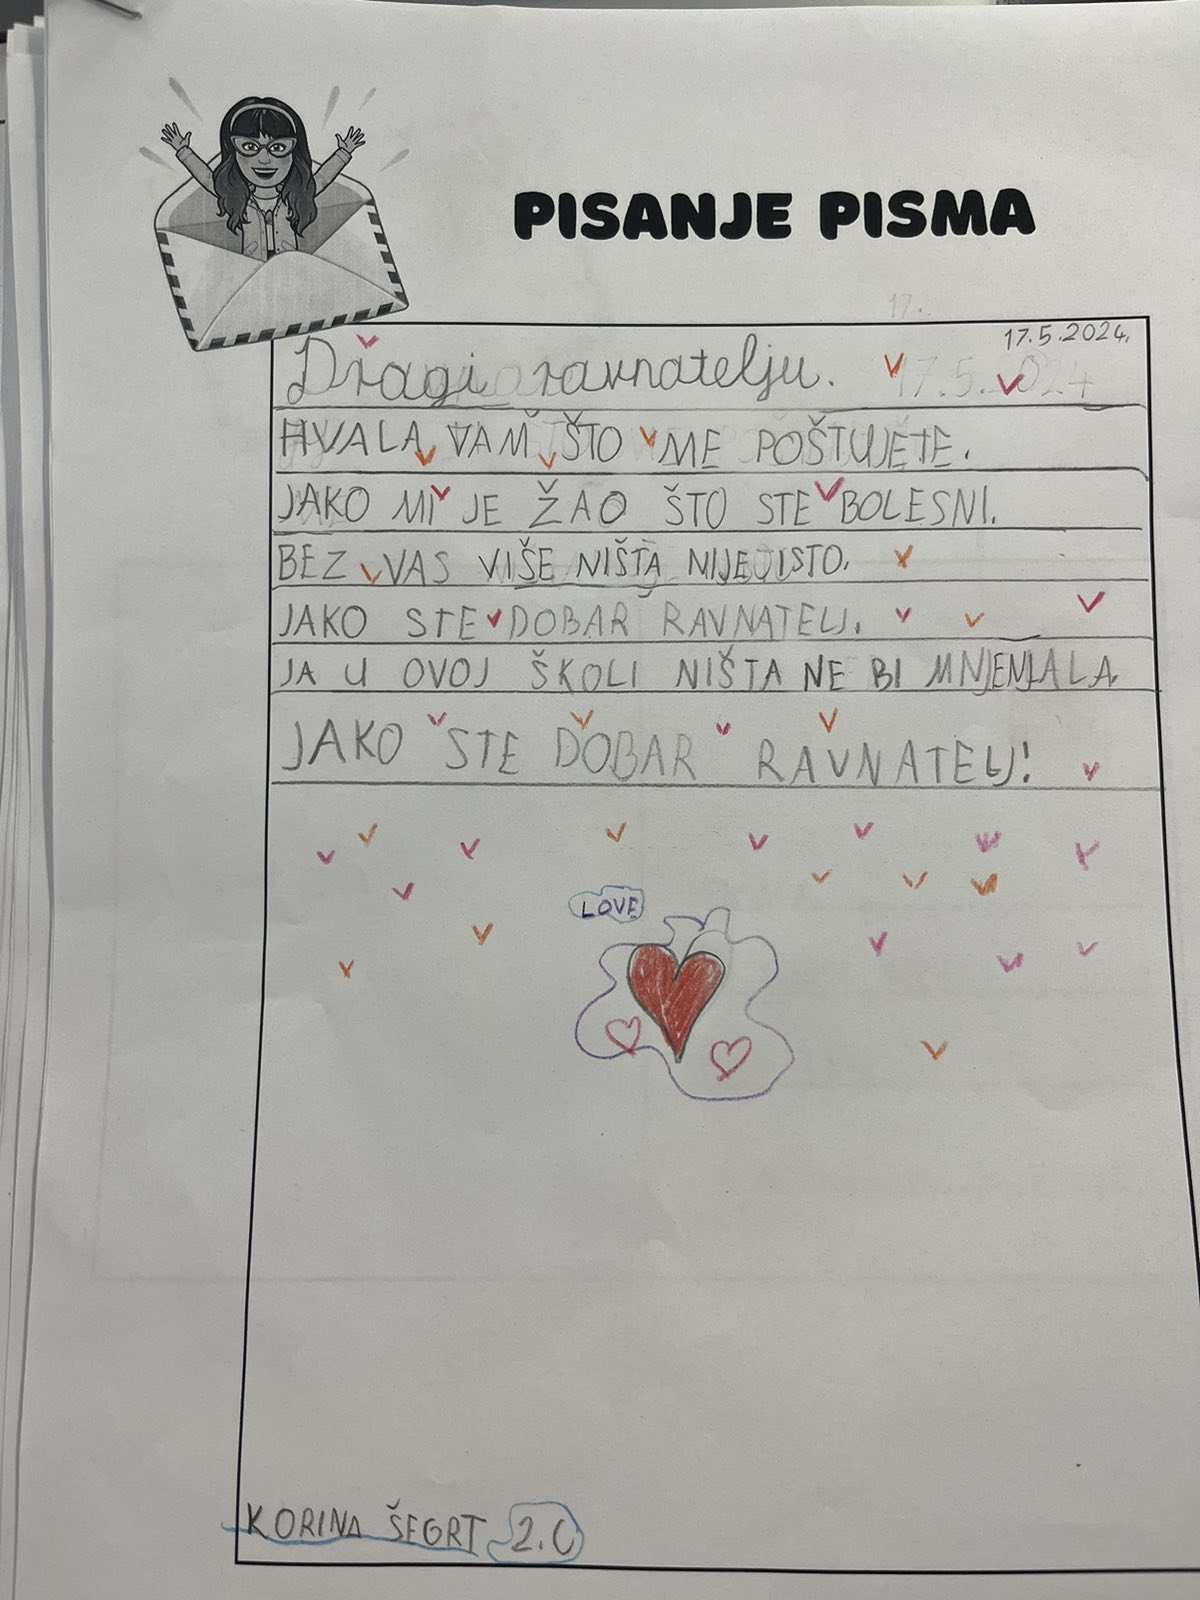 PISANJE PISMA
17.5.2024.
Dragi ravnatelju.
HVALA VAM ŠTO ME POŠTUJETE.
JAKO MI JE ŽAO ŠTO STE BOLESNI.
BEZ VAS VIŠE NIŠTA NIJE ISTO.
JAKO STE DOBAR RAVNATELJ.
JA U OVOJ ŠKOLI NIŠTA NE BI MNJENJALA.
JAKO STE DOBAR RAVNATELJ!
LOVE
KORINA ŠEGRT 2.C